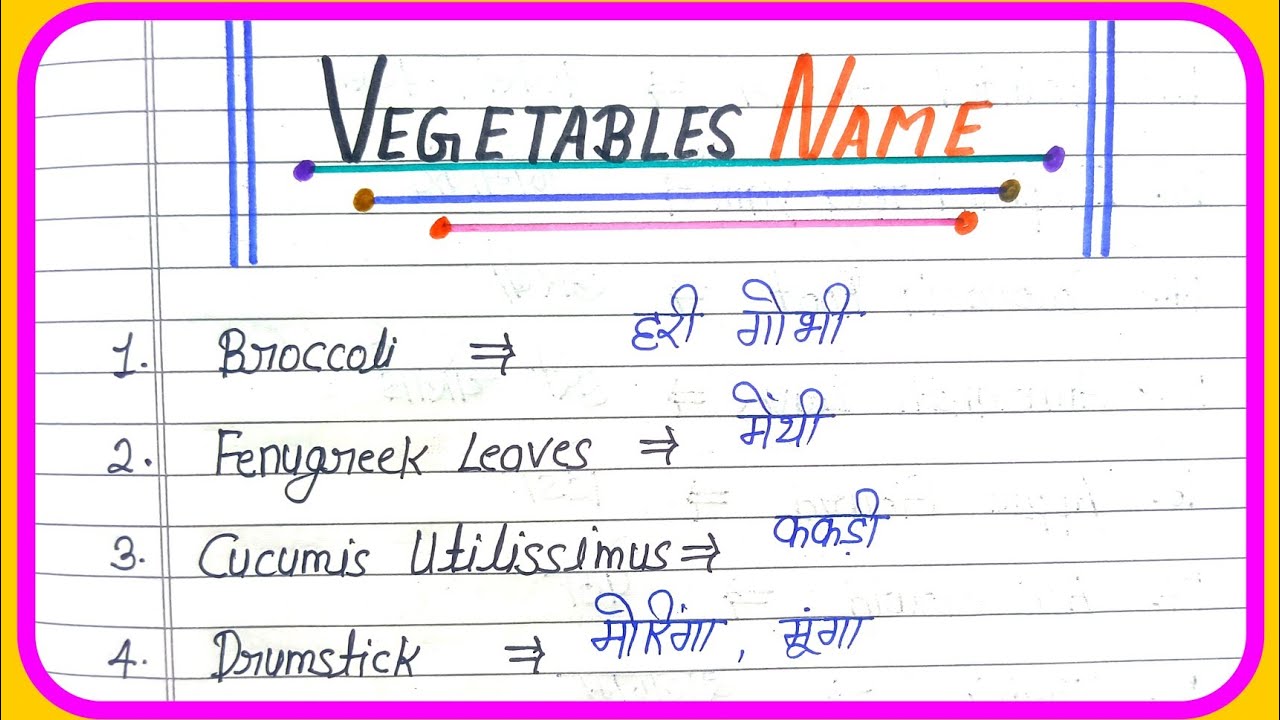 VEGETABLES NAME
1. Broccoli ⇒ हरी गोभी
2. Fenugreek Leaves ⇒ मेंथी
3. Cucumis Utilissimus ⇒ ककड़ी
4. Drumstick ⇒ मोरिंगा, मूंगा